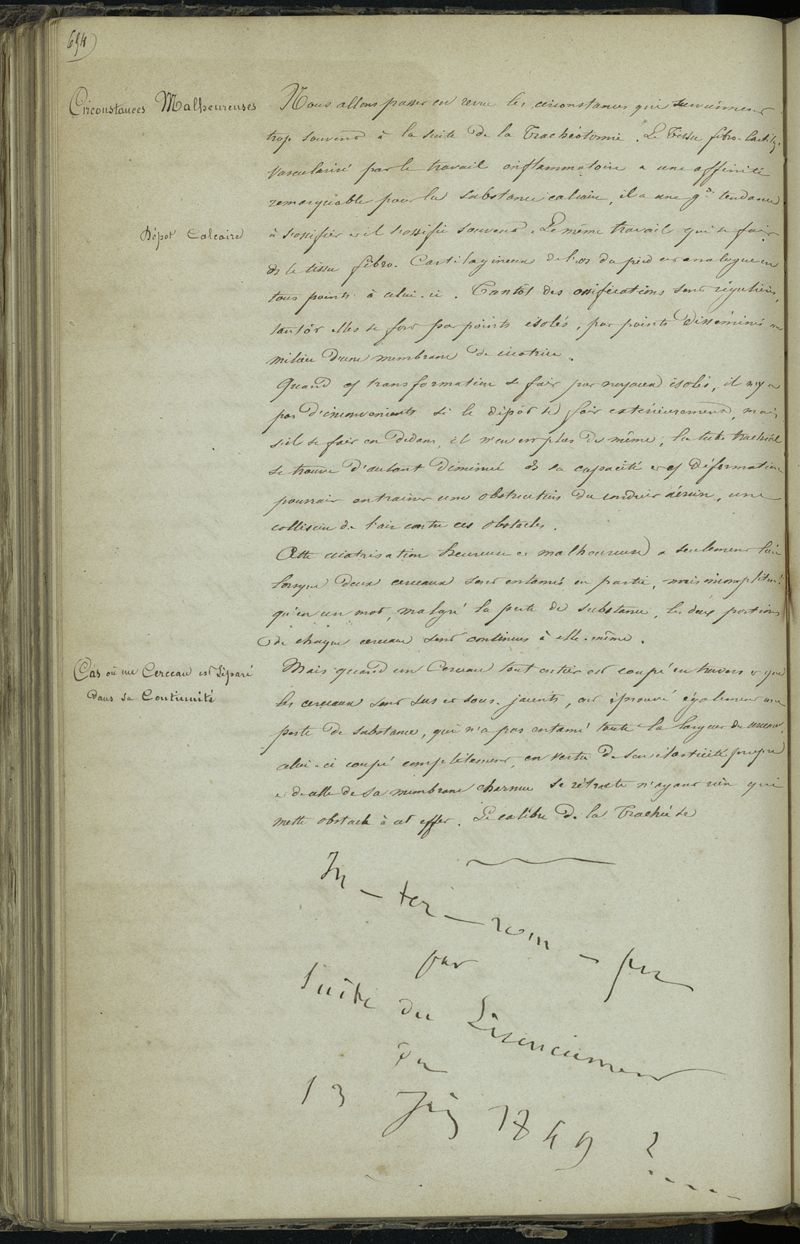 694)
Circonstances Malheureuses
Nous allons passer en revue les circonstances qui surviennent
trop souvent à la suite de la Trachéotomie. Le Tissu fibro-Cartilg.
vascularisé par le travail inflammatoire a une affinité
remarquable pour la substance calcaire, il a une gde tendance
Dépot Calcaire
à s'ossifier et il s'ossifie souvent. Le même travail qui se fait
ds le tissu fibro-Cartilagineux de l'os du pied est analogue en
tous points à celui-ci. Tantôt des ossifications sont régulières,
tantôt elles se font par points isolés, par points disséminés au
milieu d'une membrane de cicatrice.
Quand transformation se fait par noyaux isolés, il n'y a
pas d'inconvénients si le dépôt se fait extérieurement, mais
s'il se fait en dedans, il n'en est plus de même, le tube trachéal
se trouve d'autant diminué ds sa capacité et déformation
pourrait entrainer une obstruction du conduit aérien, une
collision de l'air contre ces obstacles.
Cette cicatrisation heureuse et malheureuse a seulement lieu
lorsque deux cerceaux sont entamés en partie, mais incomplètemt
qu'en un mot, malgré la perte de substance, les deux portions
de chaque cerceau sont continues à elle-même.
Cas où un Cerceau est Séparé
Dans sa Continuité
Mais quand un Cerceau tout entier est coupé en travers et que
les cerceaux sont sus et sous-jacents, ont éprouvé également une
perte de substance, qui n'a pas entamé toute la largeur de
celui-ci coupé complètement, en vertu de son élasticité propre
et de celle de sa membrane charnue se rétracte n'ayant rien qui
mette obstacle à cet effet. Le calibre de la Trachée se
In-ter-rom-pu
par
suite du Licenciement
du
13 Juin 1849 ?....